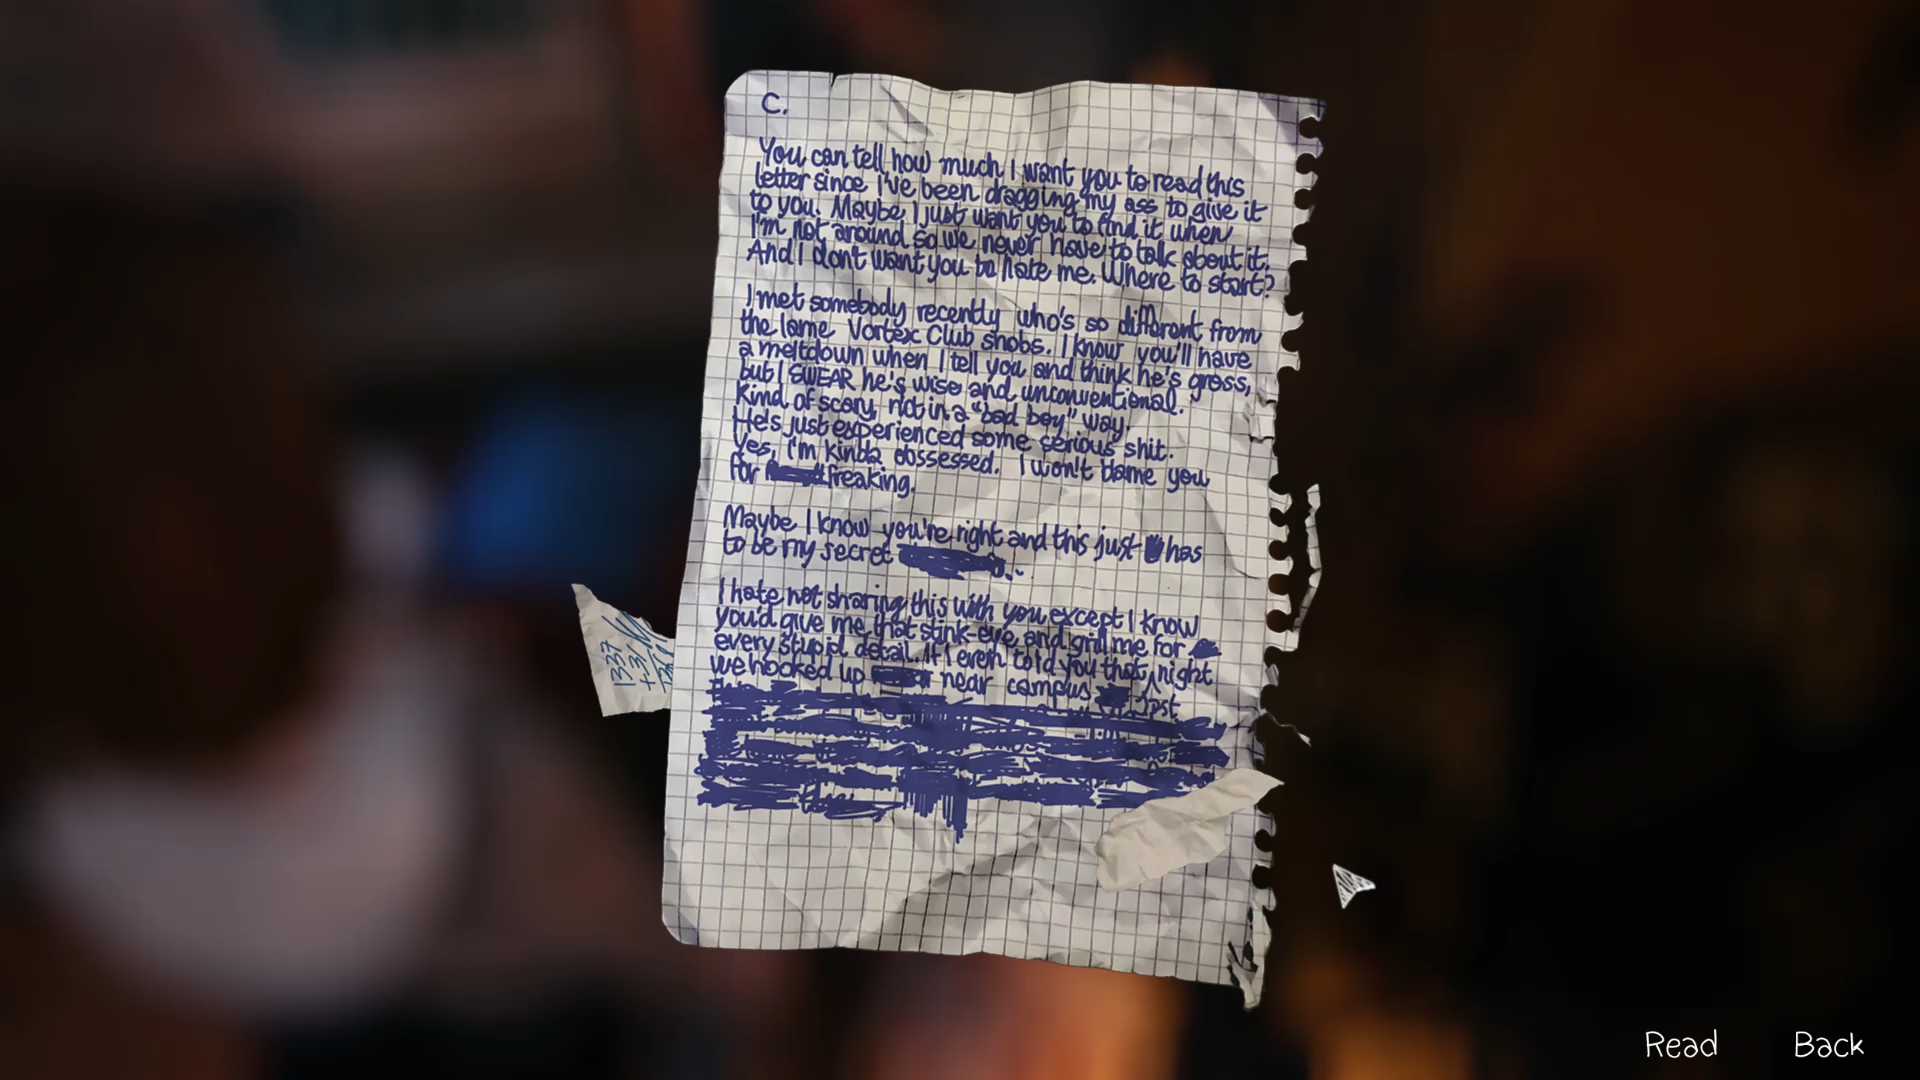 C.
You can tell how much I want you to read this
letter since I've been dragging my ass to give it
to you. Maybe I just want you to find it when
I'm not around so we never have to talk about it.
And I don't want you to hate me. Where to start?
I met somebody recently who's so different from
the lame Vortex Club snobs. I know you'll have
a meltdown when I tell you and think he's gross,
but I SWEAR he's wise and unconventional.
Kind of scary, not in a "bad boy" way.
He's just experienced some serious shit.
Yes, I'm kinda obssessed. I won't blame you
for freaking.
Maybe I know you're right and this just has
to be my secret
I hate not sharing this with you except I know
you'd give me that stink-eye and grill me for
every stupid detail. If I even told you that night
we hooked up near campus
1337
Read
Back